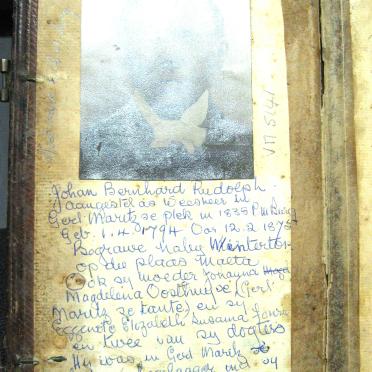 VM 5141
Johan Bernhard Rudolph.
aangestel as Weesheer in
Gerl Maritz se plek in 1838 P.M.Burg
Geb. 1.4.1794 Oor. 12.2.1875
Begrawe naby Winterton
op die plaas Malta
Ook sy moeder Johanna
Magdelena Oosthuyse (Gerl
Maritz se tante) en sy
Elizabeth Susanna
en twee van sy dogters
Hy was in Gerl Maritz se
en sy